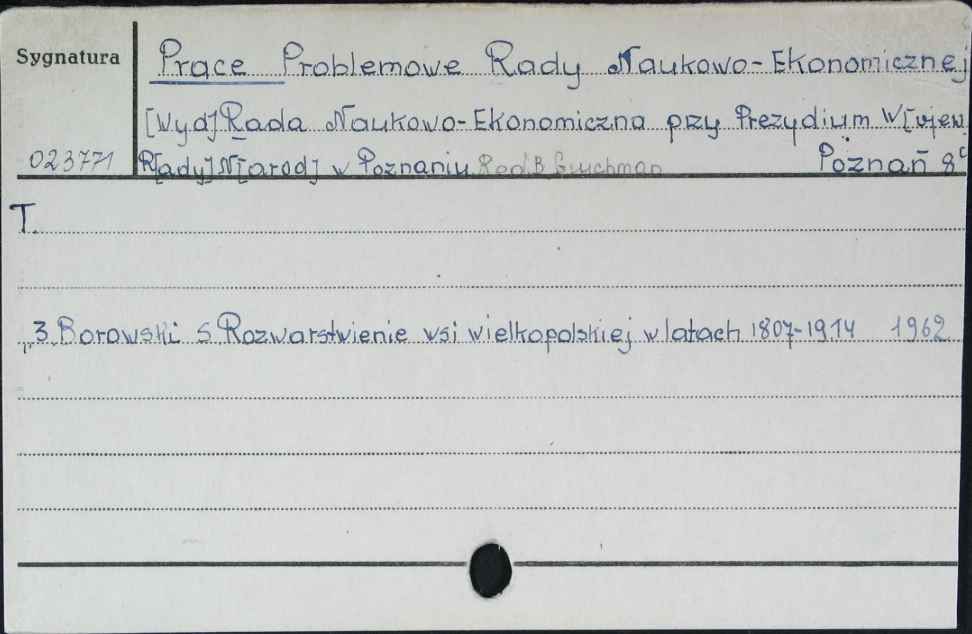 Sygnatura
Prace Problemowe Rady Naukowo-Ekonomicznej
[Wyd] Rada Naukowo-Ekonomiczna przy Prezydium W[ojew]
023771 R[ady] N[arod] w Poznaniu Red. B. Gruchman Poznań 8°
T.
3. Borowski S. Rozwarstwienie wsi wielkopolskiej w latach 1807-1914 1962